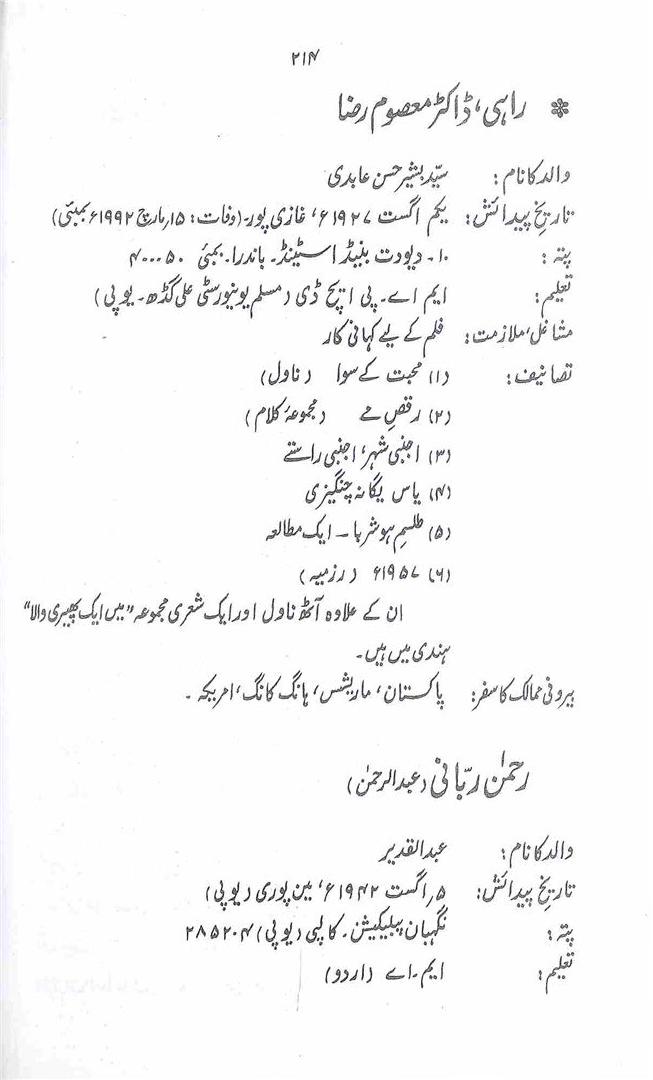 ۲۱۴
❊ راہی، ڈاکٹر معصوم رضا
والد کا نام: سیّد بشیر حسن عابدی
تاریخِ پیدائش: یکم اگست ۱۹۲۷ء، غازی پور۔ (وفات: ۱۵؍مارچ ۱۹۹۲ء بمبئی)
پتہ: ۱۰۔ دیودت بینڈ اسٹینڈ۔ باندرا۔ بمبئی ۴۰۰۰۵۰
تعلیم: ایم اے۔ پی ایچ ڈی (مسلم یونیورسٹی علی گڈھ۔ یو پی)
مشاغل، ملازمت: فلم کے لیے کہانی کار
تصانیف: (۱) محبت کے سوا (ناول)
(۲) رقصِ مے (مجموعۂ کلام)
(۳) اجنبی شہر، اجنبی راستے
(۴) یاس یگانہ چنگیزی
(۵) طلسمِ ہوشربا ۔ ایک مطالعہ
(۶) ۱۹۵۷ء (رزمیہ)
ان کے علاوہ آٹھ ناول اور ایک شعری مجموعہ "میں ایک پھیری والا"
ہندی میں ہیں۔
بیرونی ممالک کا سفر: پاکستان، ماریشس، ہانگ کانگ، امریکہ۔
رحمٰن ربّانی (عبدالرحمٰن)
والد کا نام: عبدالقدیر
تاریخِ پیدائش: ۵؍اگست ۱۹۴۲ء، مین پوری (یو پی)
پتہ: نگہبان پبلیکیشن۔ کالپی (یو پی) ۲۸۵۲۰۴
تعلیم: ایم۔اے (اردو)